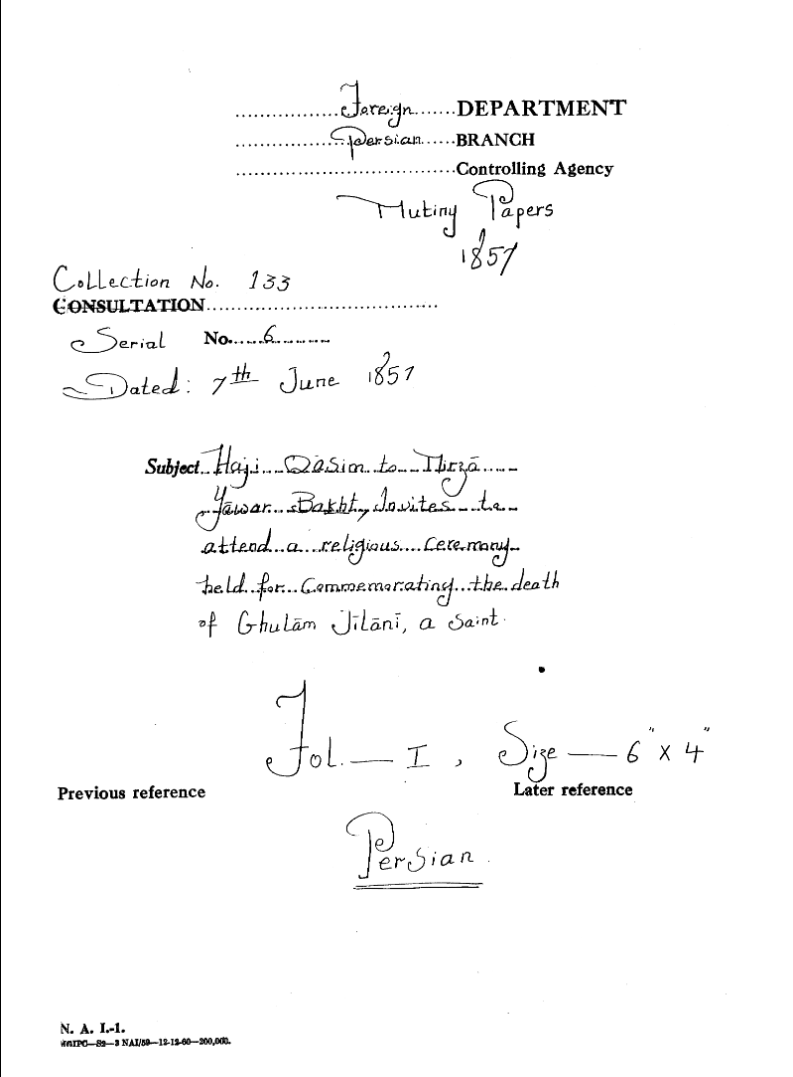 Foreign DEPARTMENT
Persian BRANCH
Controlling Agency
Mutiny Papers
1857
Collection No. 133
CONSULTATION
Serial No. 6
Dated: 7th June 1857
Subject Haji Qāsim to Mirzā
Yāwar Bakht, Invites to
attend a religious ceremony
held for Commemorating the death
of Ghulām Jīlānī, a saint.
Fol. — I, Size — 6" x 4"
Previous reference Later reference
Persian
N. A. I.-1.
NAI/59—12-12-60—200,000.